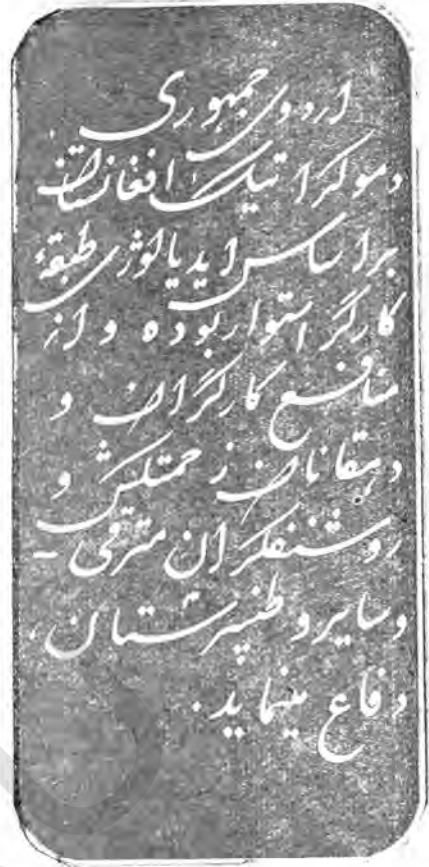 اردوی جمهوری
دموکراتیک افغانستان
براساس ایدیالوژی طبقهٔ
کارگر استوار بوده و از
منافع کارگران و
دهقانان زحمتکش و
روشنفکران مترقی -
وسایر وطنپرستان،
دفاع مینماید.